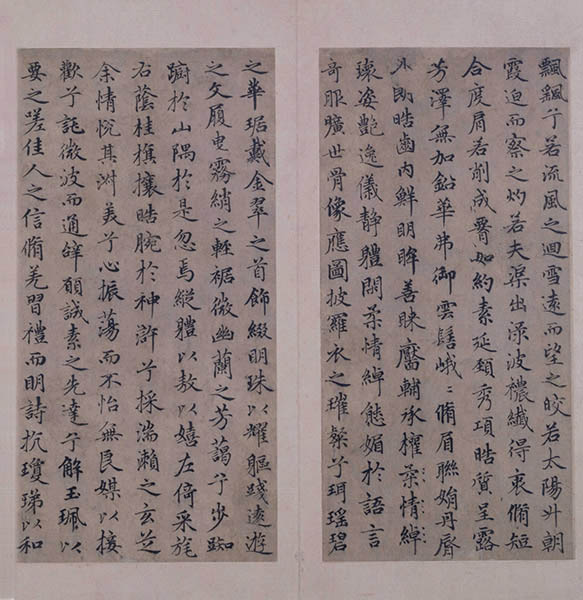 飄飖兮若流風之迴雪遠而望之皎若太陽升朝
霞迫而察之灼若夫渠出渌波穠纖得衷脩短
合度肩若削成腰如約素延頸秀項皓質呈露
芳澤無加鉛華弗御雲髻峩〻脩眉聯娟丹脣
外朗皓齒內鮮明眸善睞靨輔承權柔情綽
瓌姿艷逸儀靜體閑柔情綽態媚於語言
奇服曠世骨像應圖披羅衣之璀粲兮珥瑤碧
之華琚戴金翠之首飾綴明珠以耀軀踐遠遊
之文履曳霧綃之輕裾微幽蘭之芳藹兮步踟
蹰於山隅於是忽焉縱體以敖以嬉左倚采旄
右蔭桂旗攘皓腕於神滸兮採湍瀨之玄芝
余情悅其淑美兮心振蕩而不怡無良媒以接
歡兮託微波而通辭願誠素之先達兮解玉珮以
要之嗟佳人之信脩羌習禮而明詩抗瓊珶以和